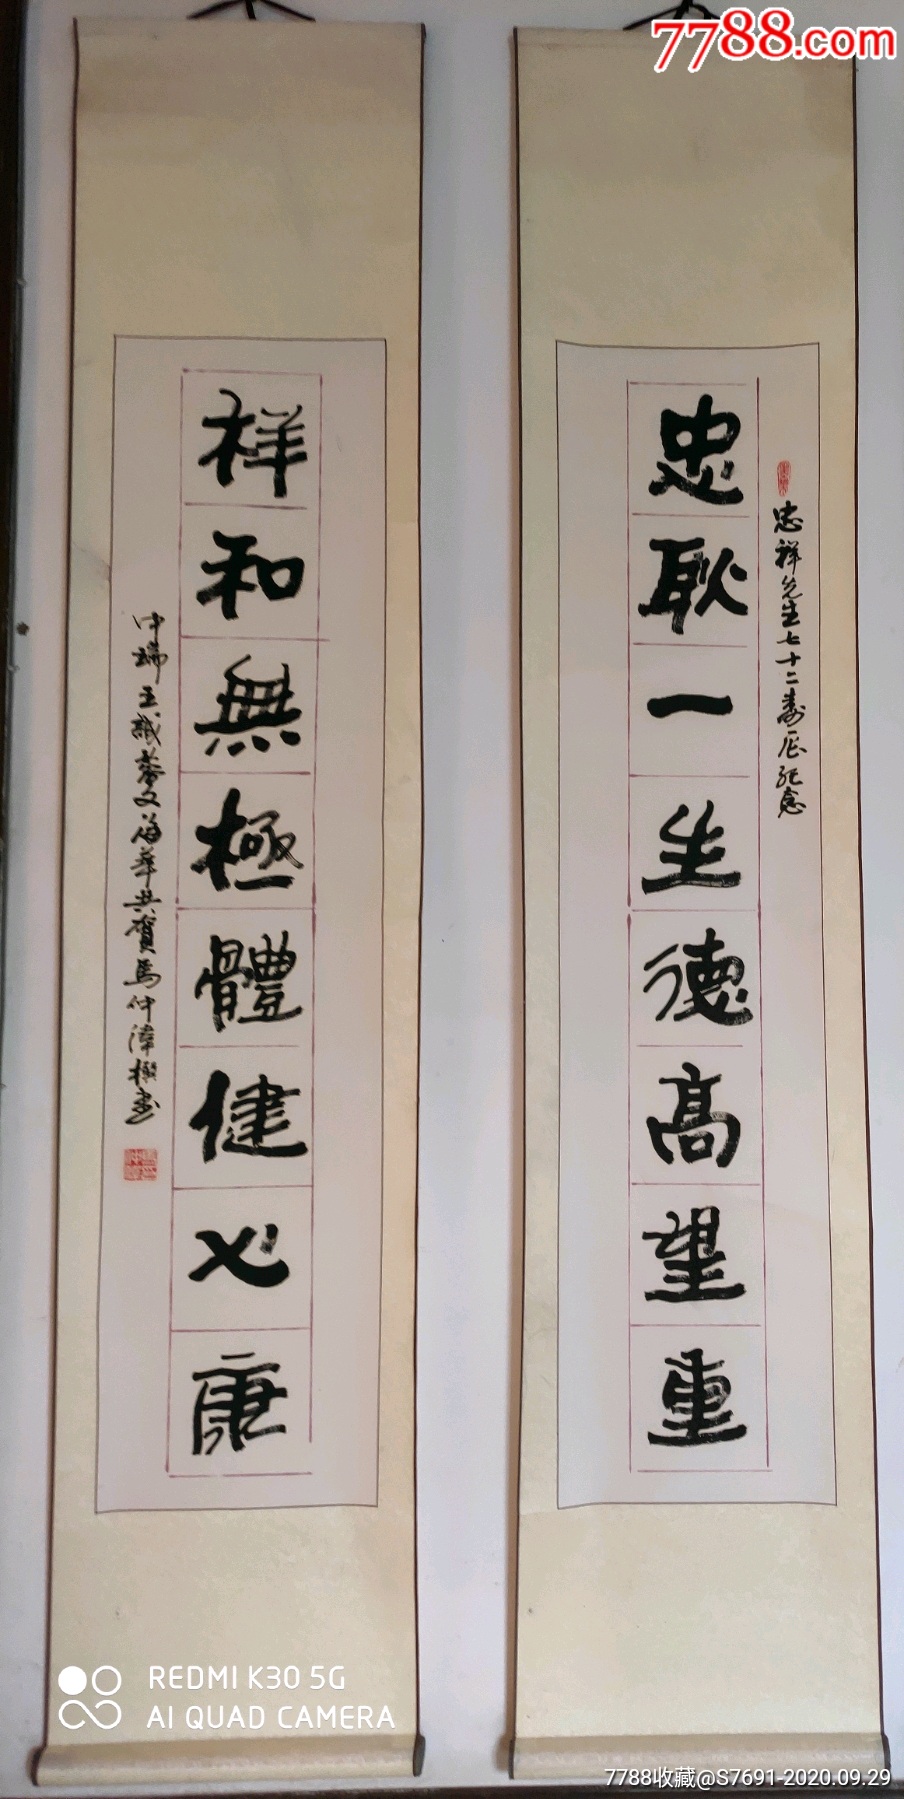 7788.com
忠祥先生七十二寿辰纪念
忠耿一生德高望重
祥和無極體健心康
中瑞 玉 華共賀馬仲 撰书
REDMI K30 5G
AI QUAD CAMERA
7788收藏@S7691-2020.09.29